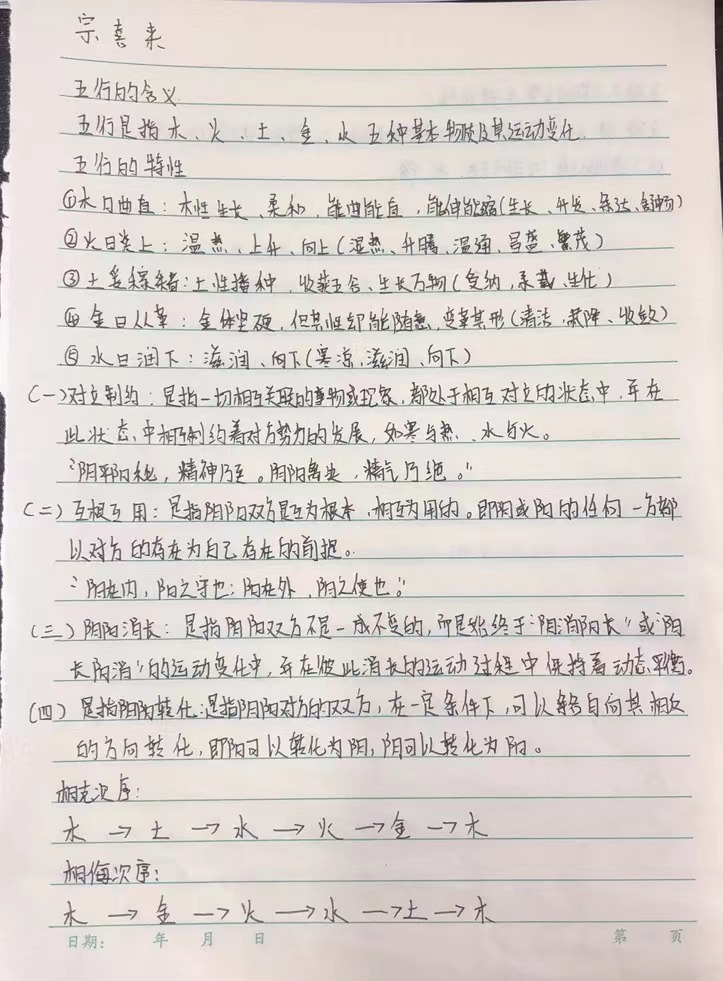 宗喜来
五行的含义
五行是指木、火、土、金、水五种基本物质及其运动变化.
五行的特性
①木曰曲直：木性生长、柔和，能曲能直，能伸能缩(生长、升发、条达、舒畅)
②火曰炎上：温热、上升、向上(温热、升腾、温通、昌盛、繁茂)
③土爰稼穑：土性播种，收获五谷、生长万物(受纳、承载、生化)
④金曰从革：金体坚硬，但其性却能随意，变革其形(清洁、肃降、收敛)
⑤水曰润下：滋润、向下(寒凉、滋润、向下)
(一)对立制约：是指一切相互关联的事物或现象，都处于相互对立的状态中，并在
此状态中相互制约着对方势力的发展，如寒与热、水与火。
“阴平阳秘，精神乃至。阴阳离决，精气乃绝。”
(二)互根互用：是指阴阳双方是互为根本，相互为用的。即阴或阳的任何一方都
以对方的存在为自己存在的前提。
“阴在内，阳之守也；阳在外，阴之使也。”
(三)阴阳消长：是指阴阳双方不是一成不变的，而是始终于“阴消阳长”或“阴
长阳消”的运动变化中，并在彼此消长的运动过程中保持着动态平衡。
(四)是指阴阳转化：是指阴阳对方的双方，在一定条件下，可以各自向其相反
的方向转化，即阳可以转化为阴，阴可以转化为阳。
相克次序：
木→土→水→火→金→木
相侮次序：
木→金→火→水→土→木
日期： 年 月 日 第 页